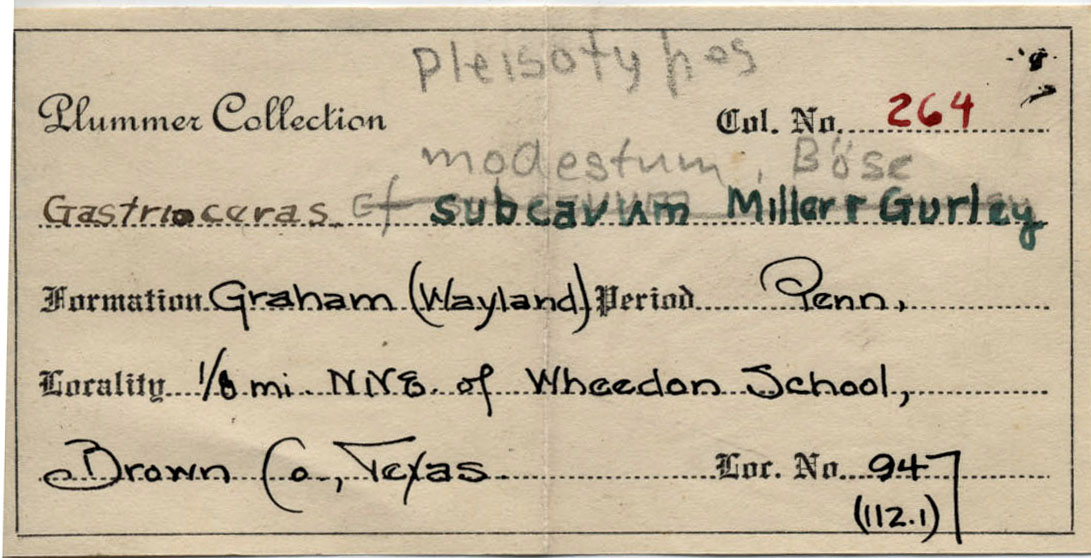 pleisotypes
Plummer Collection Col. No. 264
modestum, Böse
Gastrioceras. cf subcavum Miller & Gurley
Formation Graham (Wayland) Period Penn.
Locality 1/8 mi. NNE. of Wheedon School,
Brown Co., Texas. Loc. No. 947
(112.1)